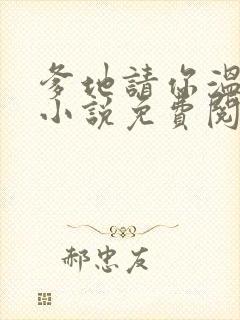 爹地請你溫
小說免費閱
郝忠友